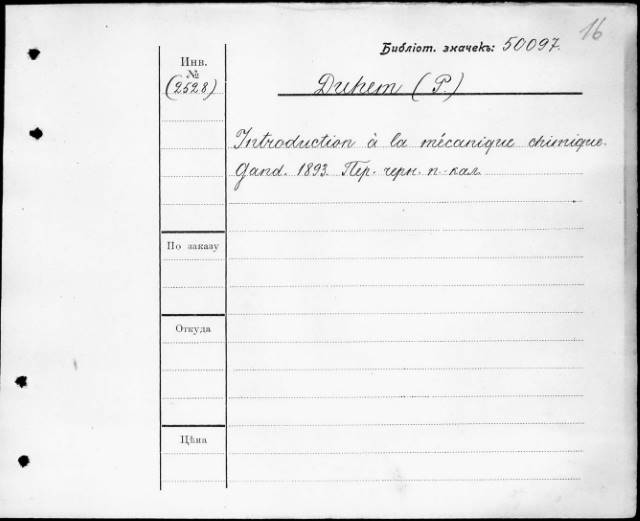 16
Библіот. значекъ: 50097.
Инв.
№
(2528)
Duhem (P.)
Introduction à la mécanique chimique.
Gand. 1893. Пер. черн. п-кал.
По заказу
Откуда
Цѣна